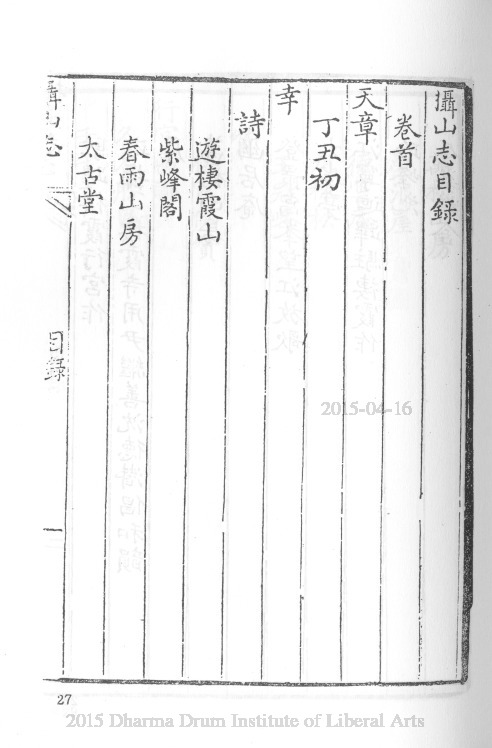 攝山志目錄
卷首
天章
丁丑初
幸
詩
遊棲霞山
紫峰閣
春雨山房
太古堂
攝山志
目錄
一
27
2015-04-16
2015 Dharma Drum Institute of Liberal Arts